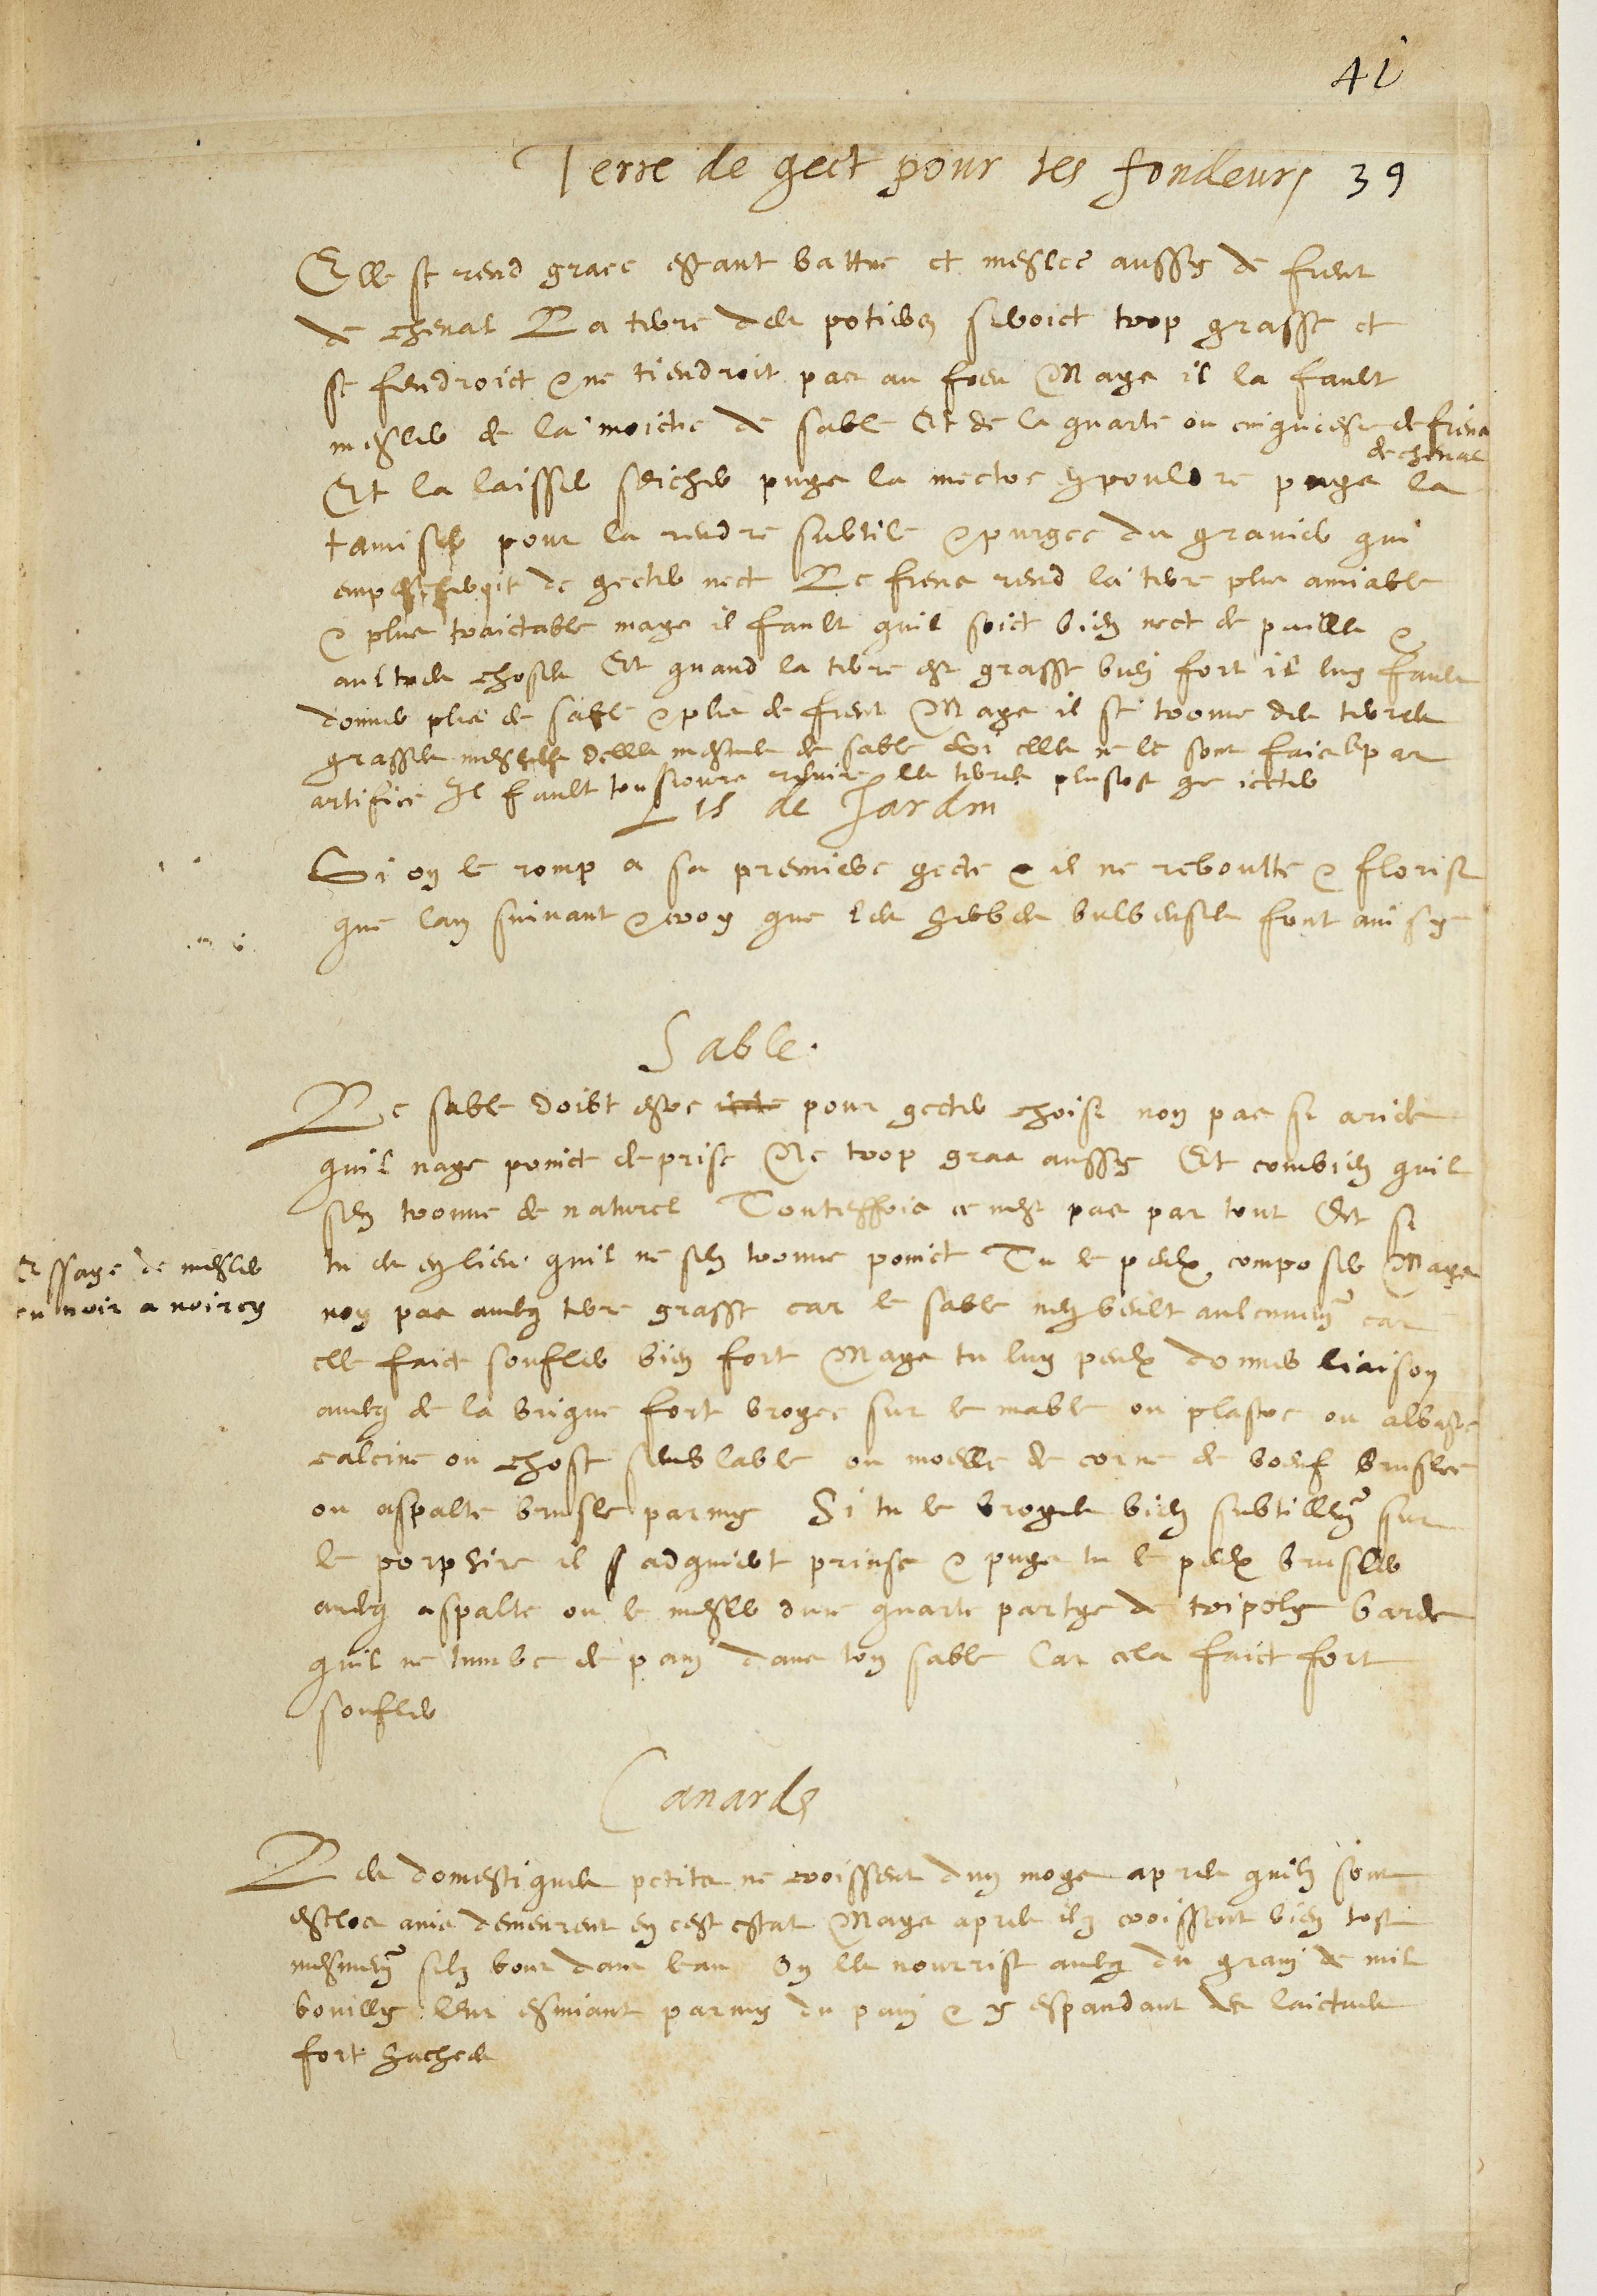 41
Terre de gect pour les fondeurs 39
Elle se rend grace estant battue et meslee aussy de fient
de cheval La terre des potiers seroict trop grasse et
se fendroict & ne tiendroit pas au foeu Mays il la fault
mesler de la moictie de sable Et de la quarte ou cinquiesme de fiens
de cheval
Et la laisser seicher puys la mectre en pouldre puys la
tamiser pour la rendre subtile & purgee du gravier qui
empescheroit de gecter nect Le fiens rend la terre plus amiable
& plus traictable mays il fault quil soict bien nect de paille &
aultres choses Et quand la terre est grasse bien fort il luy fault
donner plus de sable & plus de fient Mays il se trouve des terres
grasses meslees delles mesmes de sable Si elles ne le sont faicts par
artifice Il fault tousjours les terres plustost que iecter
Lis de Jardin
Si on le romp a sa premiere gecte & il ne reboutte & florist
que lan suivant & croy que les herbes bulbeuses font ainsy
Sable.
Le sable doibt estre pour gecter choisi non pas si aride
quil naye poinct de prise Ne trop gras aussy Et combien quil
sen trouve de naturel Touteffois ce nest pas par tout Et si
tu es en lieu quil ne sen trouve poinct Tu le peulx composer Mays
Essaye de mesler
du noir a noircy
non pas avecq terre grasse car le sable nen veult aulcunem&#x303;t car
elle faict soufler bien fort Mays tu luy peulx donner liaison
avecq de la brique fort broyee sur le mabre ou plastre ou albastre
calcine ou chose semblable ou moelle de corne de boeuf bruslee
ou aspalte brusle parmy Si tu le broyes bien subtillem&#x303;t sur
le porphire il s adquiert prinse & puys tu le peulx brusler
avecq aspalte ou le mesler dune quarte partye de tripoly Garde
quil ne tumbe de pain dans ton sable Car cela faict fort
soufler
Canards
Les domestiques petits ne croissent dun moys apres quilz sont
esclos ains demeurent en cest estat Mays apres ilz croissent bien tost
mesmem&#x303;t silz vont dans leau On les nourrist avecq du grain de mil
bouilly leur esmiant parmy du pain & y espandant des laictues
fort hachees